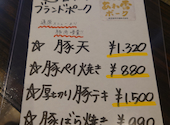 ブランドポーク
ポーク
☆ 豚天 ¥1.320
☆ 豚ペイ焼き ¥880
☆ 厚切り豚テキ ¥1.500
☆ 豚ばら焼き ¥990